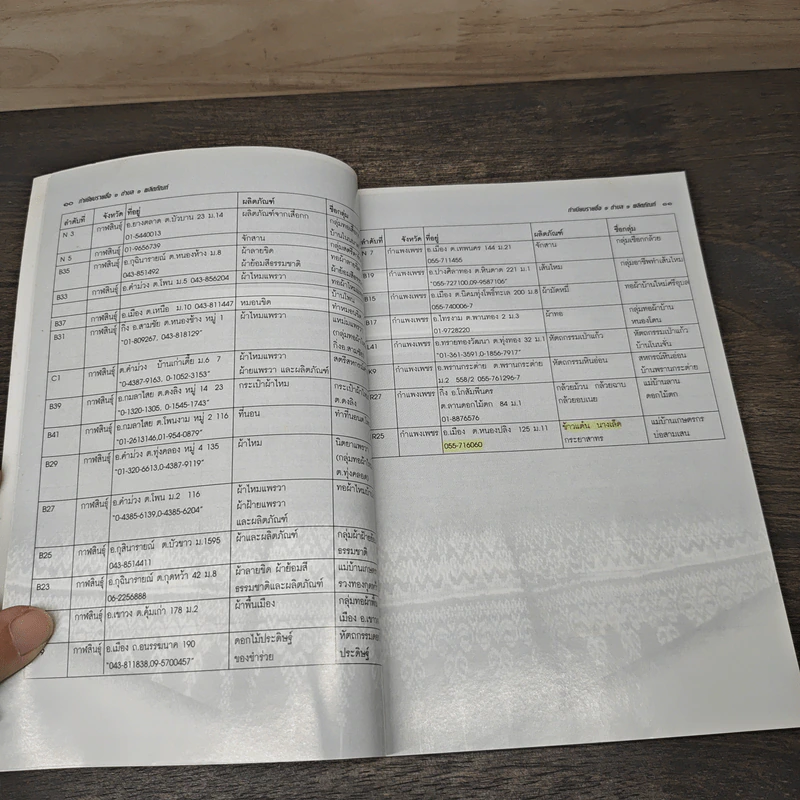 ๑๐ ทำเนียบรายชื่อ ๑ ตำบล ๑ ผลิตภัณฑ์
ลำดับที่ จังหวัด ที่อยู่ ผลิตภัณฑ์ ชื่อกลุ่ม
N 3 กาฬสินธุ์ อ.ยางตลาด ต.บัวบาน 23 ม.14 ผลิตภัณฑ์จากเสื่อกก
01-5440013
N 5 กาฬสินธุ์ 01-9656739 จักสาน
B35 กาฬสินธุ์ อ.กุฉินารายณ์ ต.หนองห้าง ม.8 ผ้าลายขิด
043-851492 ผ้าย้อมสีธรรมชาติ
B33 กาฬสินธุ์ อ.คำม่วง ต.โพน ม.5 043-856204 ผ้าไหมแพรวา
B37 กาฬสินธุ์ อ.เมือง ต.เหนือ ม.10 043-811447 หมอนขิด
B31 กาฬสินธุ์ กิ่ง อ.สามชัย ต.หนองช้าง หมู่ 1 ผ้าไหมแพรวา
"01-809267, 043-818129"
C1 กาฬสินธุ์ ต.คำม่วง บ้านเก่าเดื่อ ม.6 7 ผ้าไหมแพรวา
"0-4387-9163, 0-1052-3153" ผ้าฝ้ายแพรวา และผลิตภัณฑ์
B39 กาฬสินธุ์ อ.กมลาไสย ต.ดงลิง หมู่ 14 23 กระเป๋าผ้าไหม
"0-1320-1305, 0-1545-1743"
B41 กาฬสินธุ์ อ.กมลาไสย ต.โพนงาม หมู่ 2 116 ที่นอน
"01-2613146,01-954-0879"
B29 กาฬสินธุ์ อ.คำม่วง ต.ทุ่งคลอง หมู่ 4 135 ผ้าไหม
"01-320-6613,0-4387-9119"
B27 กาฬสินธุ์ อ.คำม่วง ต.โพน ม.2 116 ผ้าไหมแพรวา
"0-4385-6139,0-4385-6204" ผ้าฝ้ายแพรวา
และผลิตภัณฑ์
B25 กาฬสินธุ์ อ.กุสินารายณ์ ต.บัวขาว ม.1595 ผ้าและผลิตภัณฑ์
043-8514411 ธรรมชาติ
B23 กาฬสินธุ์ อ.กุฉินารายณ์ ต.กุดหว้า 42 ม.8 ผ้าลายขิด ผ้าย้อมสี
06-2256888 ธรรมชาติและผลิตภัณฑ์
กาฬสินธุ์ อ.เขาวง ต.คุ้มเก่า 178 ม.2 ผ้าพื้นเมือง
กาฬสินธุ์ อ.เมือง ถ.อนรรฆนาค 190 ดอกไม้ประดิษฐ์
"043-811838,09-5700457" ของชำร่วย ประดิษฐ์
ทำเนียบรายชื่อ ๑ ตำบล ๑ ผลิตภัณฑ์ ๑๑
จังหวัด ที่อยู่ ผลิตภัณฑ์ ชื่อกลุ่ม
N 7 กำแพงเพชร อ.เมือง ต.เทพนคร 144 ม.21 จักสาน กลุ่มเชือกกล้วย
055-711455
B19 กำแพงเพชร อ.ปางศิลาทอง ต.หินดาต 221 ม.1 เส้นไหม กลุ่มอาชีพทำเส้นไหม
"055-727100,09-9587106"
B15 กำแพงเพชร อ.เมือง ต.นิคมทุ่งโพธิ์ทะเล 200 ม.8 ผ้ามัดหมี่ ทอผ้าบ้านใหม่ศรีอุบล
055-740006-7
B17 กำแพงเพชร อ.ไทรงาม ต.พานทอง 2 ม.3 ผ้าทอ กลุ่มทอผ้าบ้าน
01-9728220 หนองโตน
L41 กำแพงเพชร อ.ทรายทองวัฒนา ต.ทุ่งทอง 32 ม.1 หัตถกรรมเป่าแก้ว หัตถกรรมเป่าแก้ว
"01-361-3591,0-1856-7917" บ้านโนนจั่น
K9 กำแพงเพชร อ.พรานกระต่าย ต.พรานกระต่าย หัตถกรรมหินอ่อน สหกรณ์หินอ่อน
ม.2 558/2 055-761296-7 บ้านพรานกระต่าย
R27 กำแพงเพชร กิ่ง อ.โกสัมพีนคร กล้วยม้วน กล้วยฉาบ แม่บ้านลาน
ต.ลานดอกไม้ตก 84 ม.1 กล้วยอบเนย ดอกไม้ตก
01-8876576
R25 กำแพงเพชร อ.เมือง ต.หนองปลิง 125 ม.11 ข้าวแต๋น นางเล็ด แม่บ้านเกษตรกร
055-716060 กระยาสารท บ่อสามเสน